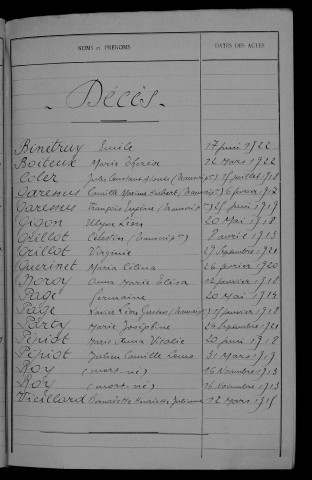 NOMS ET PRÉNOMS DATES DES ACTES
- Décès -
Binétruy Emile 17 juin 1922
Boiteux Marie Thérèse 12 Mars 1922
Coler Jules Constant (Transcipt) 15 juillet 1918
Garesnus Camille Marius Hubert (Transcript) 6 février 1917
Garesnus François Eugène (Transcript) 25 juin 1919
Gigon Ulysse Léon 20 Mai 1918
Grillot Célestin (Transcript) 8 avril 1913
Grillot Virginie 29 Septembre 1921
Guerinet Maria Célina 26 février 1920
Noroy Anna Marie Elisa 12 janvier 1918
Page Germaine 20 Mai 1914
Page Xavier Léon Gustave (Transcript) 15 janvier 1918
Party Marie Joséphine 24 Septembre 1921
Pépiot Marie Anna 20 juin 1918
Pépiot Julien Camille Louis 31 Mars 1917
Roy (mort-né) 16 Novembre 1913
Roy (mort-né) 16 Novembre 1913
Vieillard Bernadette Henriette Julienne 12 Mars 1915